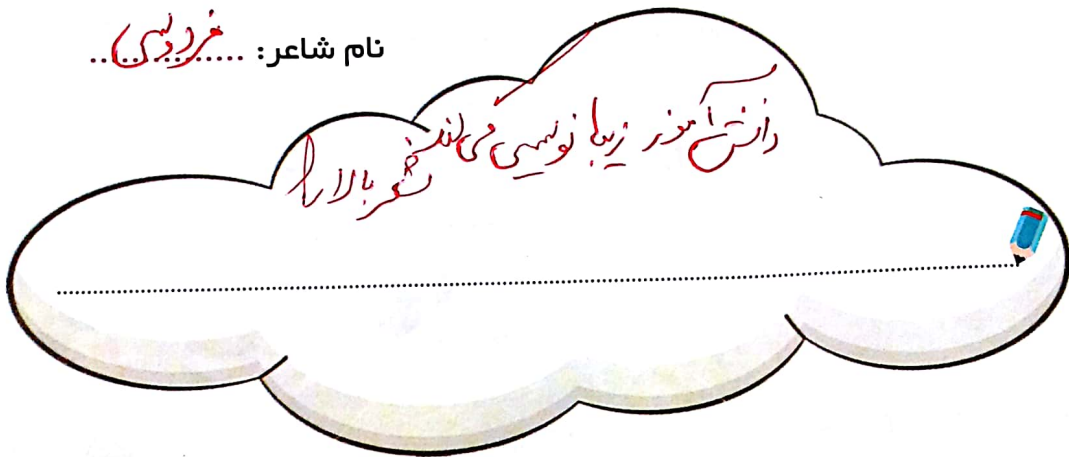 نام شاعر: فردوسی
دانش آموز زیبا نویسی می کند
شعر بالا را